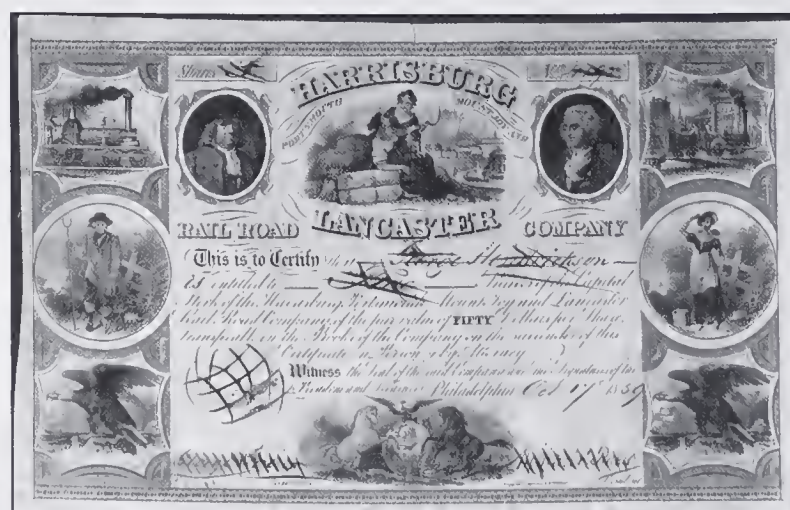 Shares
HARRISBURG
PORTSMOUTH MOUNT-JOY AND
LANCASTER
RAIL ROAD COMPANY
This is to Certify that Hendrickson
is entitled to Shares of the Capital
Stock of the Harrisburg, Portsmouth, Mount Joy and Lancaster
Rail Road Company of the par value of FIFTY Dollars per Share,
transferable on the Books of the Company on the surrender of this
Certificate in Person or by Attorney
Witness the Seal of the said Company and the Signatures of the
President and Treasurer Philadelphia Oct 17 1859